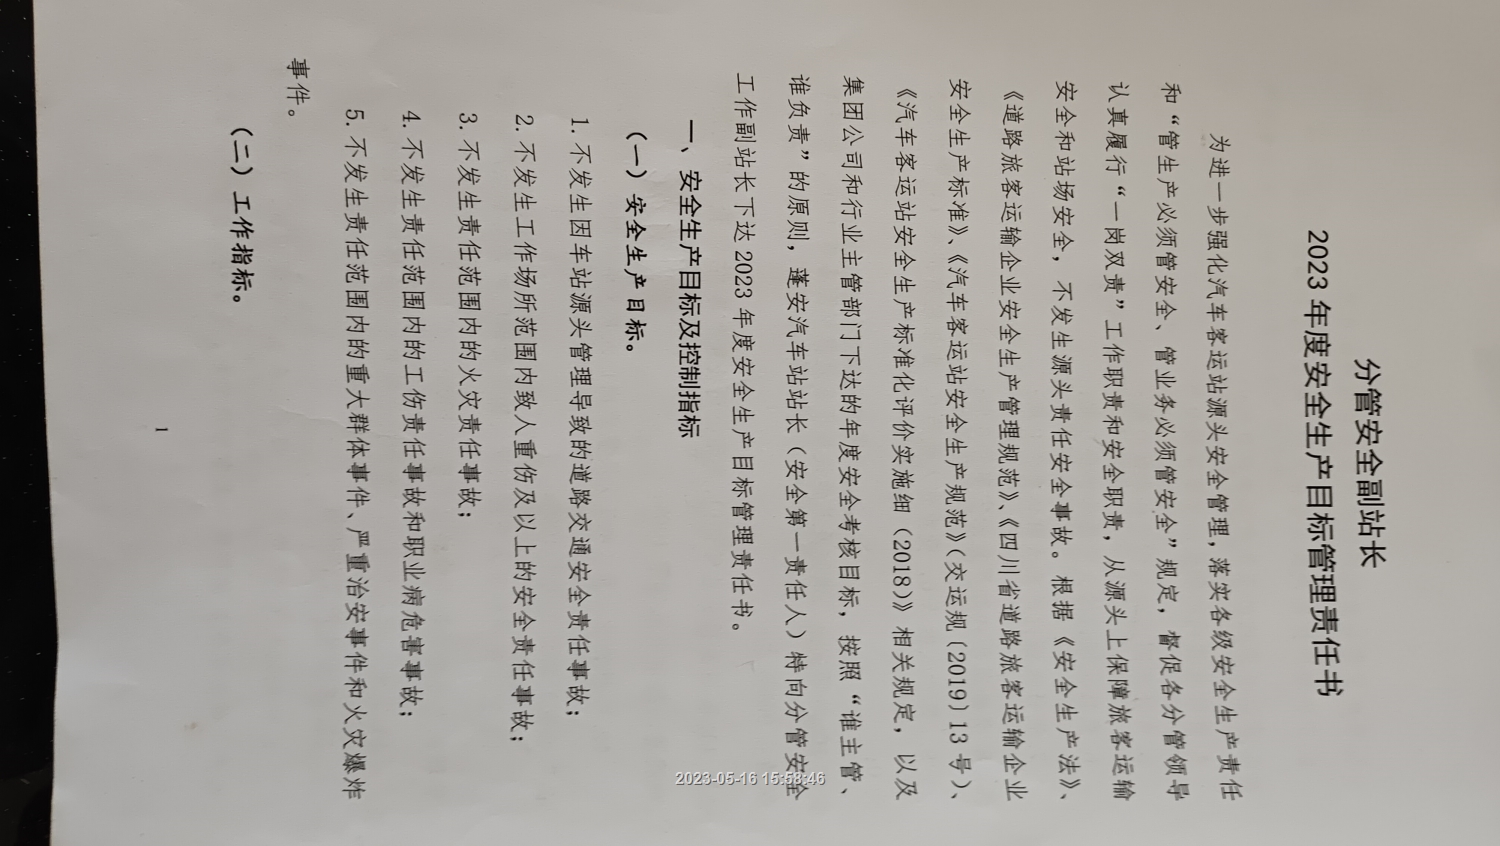 分管安全副站长
2023 年度安全生产目标管理责任书
为进一步强化汽车客运站源头安全管理，落实各级安全生产责任
和“管生产必须管安全、管业务必须管安全”规定，督促各分管领导
认真履行“一岗双责”工作职责和安全职责，从源头上保障旅客运输
安全和站场安全，不发生源头责任安全事故。根据《安全生产法》、
《道路旅客运输企业安全生产管理规范》、《四川省道路旅客运输企业
安全生产标准》、《汽车客运站安全生产规范》（交运规（2019）13 号）、
《汽车客运站安全生产标准化评价实施细（2018）》相关规定，以及
集团公司和行业主管部门下达的年度安全考核目标，按照“谁主管、
谁负责”的原则，蓬安汽车站站长（安全第一责任人）特向分管安全
工作副站长下达 2023 年度安全生产目标管理责任书。
一、安全生产目标及控制指标
（一）安全生产目标。
1. 不发生因车站源头管理导致的道路交通安全责任事故；
2. 不发生工作场所范围内致人重伤及以上的安全责任事故；
3. 不发生责任范围内的火灾责任事故；
4. 不发生责任范围内的工伤责任事故和职业病危害事故；
5. 不发生责任范围内的重大群体事件、严重治安事件和火灾爆炸
事件。
（二）工作指标。
1
2023-05-16 15:58:46